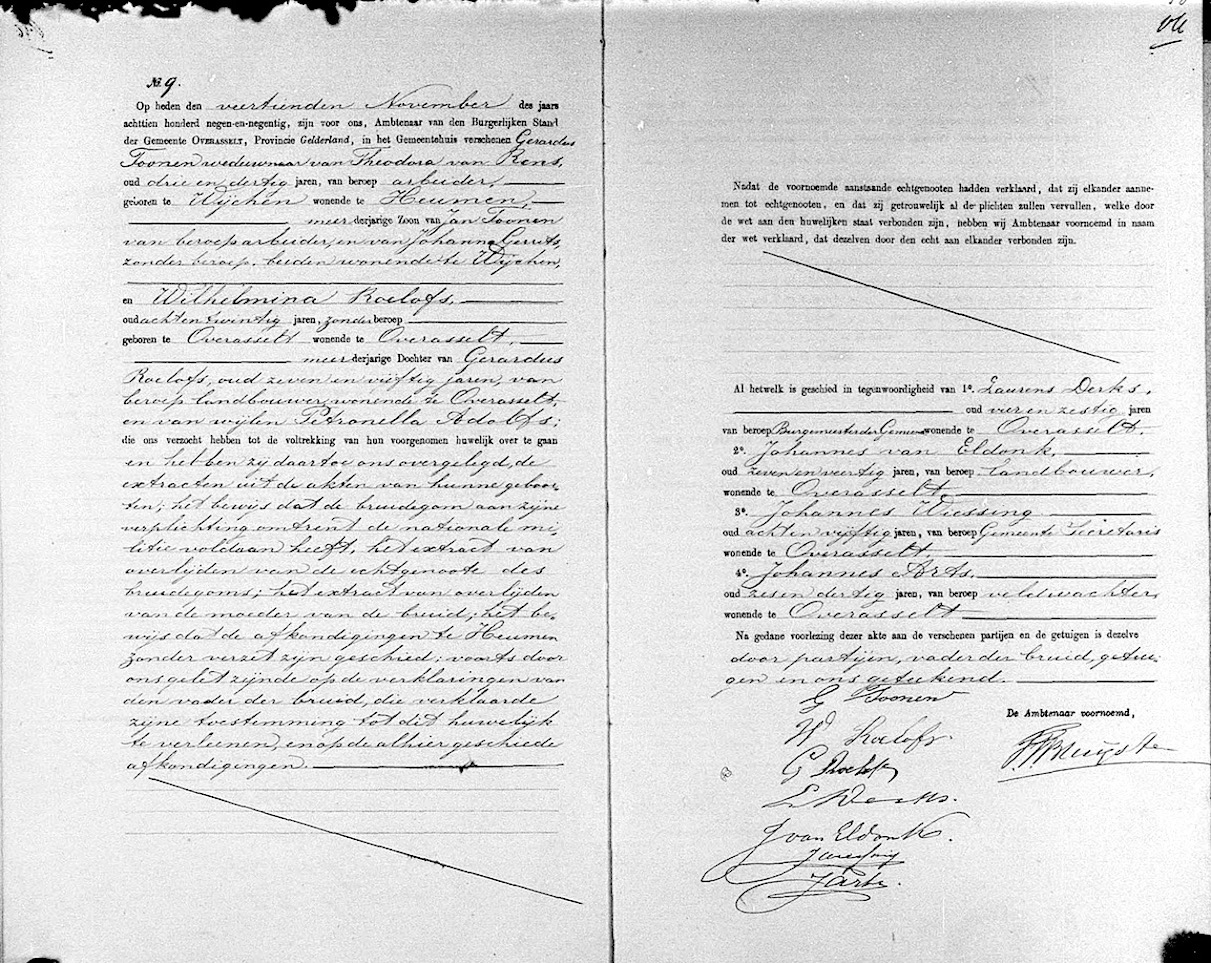 No. 9.
Op heden den veertienden November des jaars
achttien honderd negen-en-negentig, zijn voor ons, Ambtenaar van den Burgerlijken Stand
der Gemeente OVERASSELT, Provincie Gelderland, in het Gemeentehuis verschenen Gerardus
Toonen weduwnaar van Theodora van Rens,
oud drie en dertig jaren, van beroep arbeider,
geboren te Wijchen wonende te Heumen,
meerderjarige Zoon van Jan Toonen
van beroep arbeider, en van Johanna Gerrits,
zonder beroep, beiden wonende te Wijchen,
en Wilhelmina Roelofs,
oud acht en twintig jaren, zonder beroep
geboren te Overasselt wonende te Overasselt,
meerderjarige Dochter van Gerardus
Roelofs, oud zeven en vijftig jaren, van
beroep landbouwer, wonende te Overasselt,
en van wijlen Petronella Adolfs;
die ons verzocht hebben tot de voltrekking van hun voorgenomen huwelijk over te gaan
en hebben zij daartoe ons overgelegd, de
extracten uit de akten van hunne geboor-
ten; het bewijs dat de bruidegom aan zijne
verplichting omtrent de nationale mi-
litie voldaan heeft, het extract van
overlijden van de echtgenoote des
bruidegoms; het extract van overlijden
van de moeder van de bruid; het be-
wijs dat de afkondigingen te Heumen
zonder verzet zijn geschied; voorts door
ons gelet zijnde op de verklaringen van
den vader der bruid, die verklaarde
zijne toestemming tot dit huwelijk
te verleenen, en op de alhier geschiede
afkondigingen.
Nadat de voornoemde aanstaande echtgenooten hadden verklaard, dat zij elkander aanne-
men tot echtgenooten, en dat zij getrouwelijk al de plichten zullen vervullen, welke door
de wet aan den huwelijken staat verbonden zijn, hebben wij Ambtenaar voornoemd in naam
der wet verklaard, dat dezelven door den echt aan elkander verbonden zijn.
Al hetwelk is geschied in tegenwoordigheid van 1o. Laurens Derks,
oud vier en zestig jaren
van beroep Burgemeester der Gemeente wonende te Overasselt.
2o. Johannes van Eldonk,
oud zeven en veertig jaren, van beroep landbouwer,
wonende te Overasselt,
3o. Johannes Wiessing
oud acht en vijftig jaren, van beroep Gemeente Secretaris
wonende te Overasselt,
4o. Johannes Arts,
oud zes en dertig jaren, van beroep veldwachter,
wonende te Overasselt
Na gedane voorlezing dezer akte aan de verschenen partijen en de getuigen is dezelve
door partijen, vader der bruid, getui-
gen en ons geteekend.
G Toonen
De Ambtenaar voornoemd,
W Roelofs.
G Roelofs
L Derks.
J van Eldonk.
J Wiessing
J Arts.